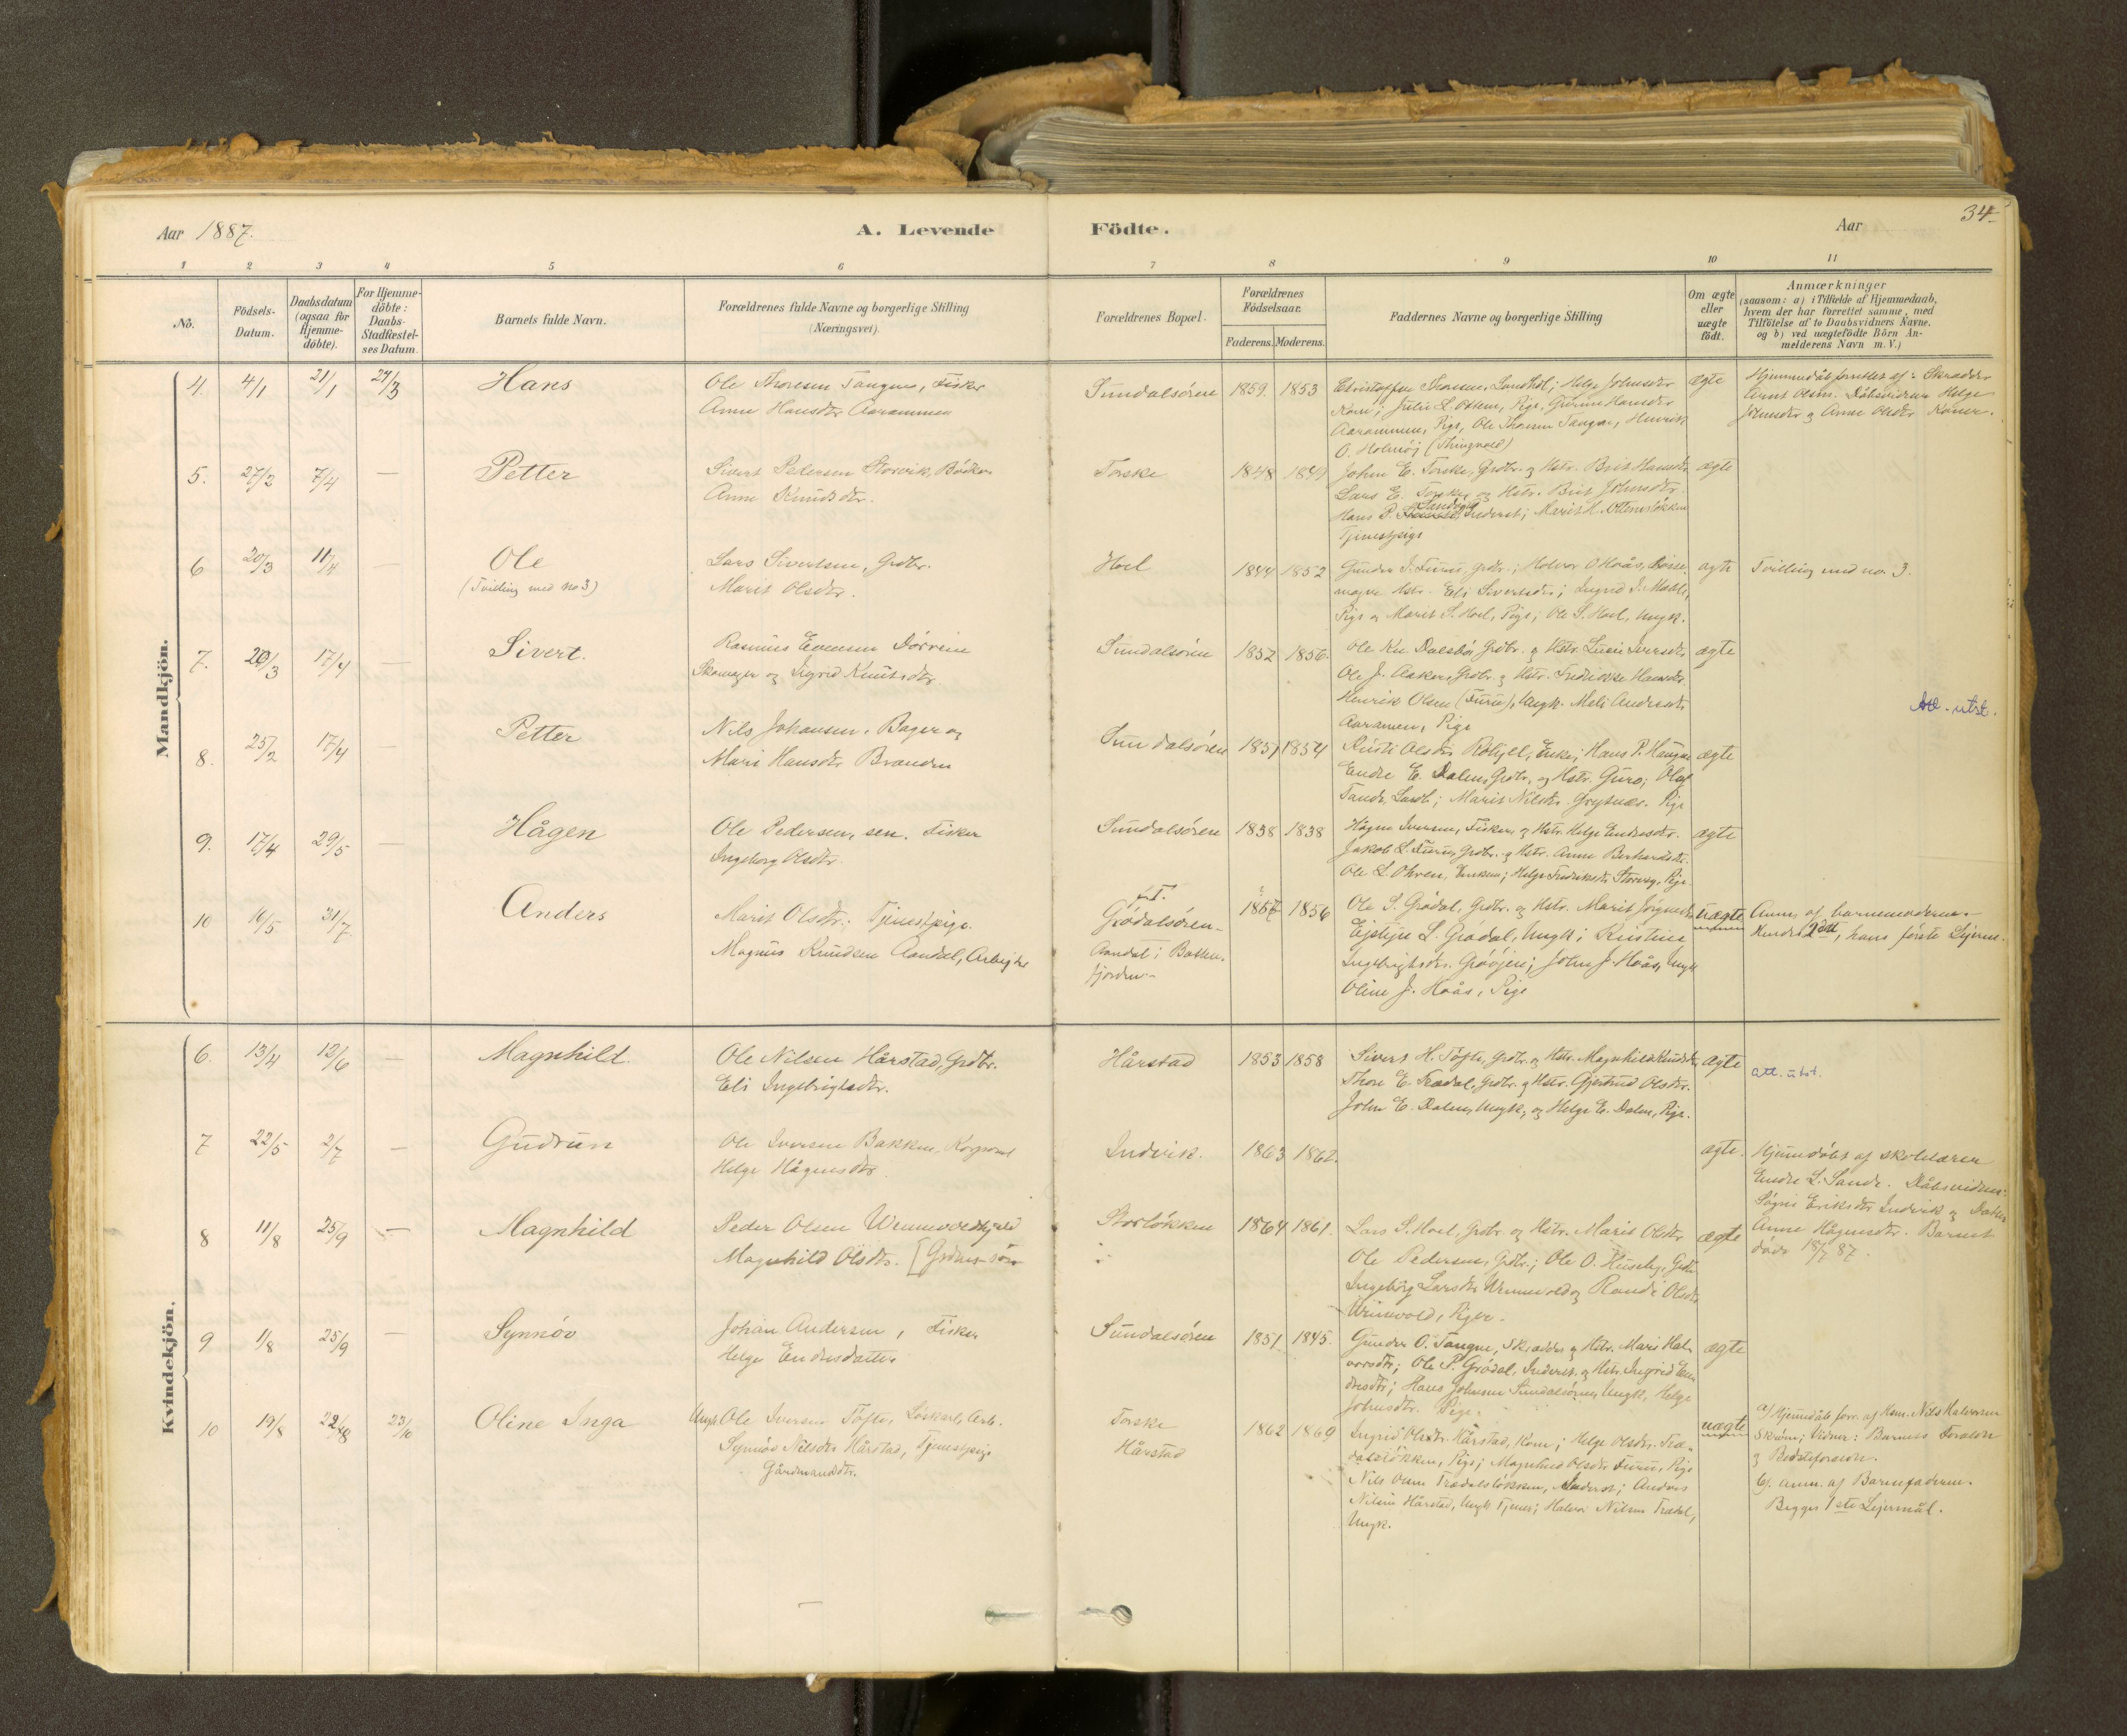 Aar 1887.
A. Levende
Födte.
Aar
34
1
2
3
4
5
6
7
8
9
10
11
No.
Födsels-
Datum.
Daabsdatum
(ogsaa for
Hjemme-
döbte).
For Hjemme-
döbte:
Daabs-
Stadfæstel-
ses Datum.
Barnets fulde Navn.
Forældrenes fulde Navne og borgerlige Stilling
(Næringsvei).
Forældrenes Bopæl.
Forældrenes
Födselsaar.
Faderens.
Moderens.
Faddernes Navne og borgerlige Stilling
Om ægte
eller
uægte
födt.
Anmærkninger
(saasom: a) i Tilfælde af Hjemmedaab,
hvem der har forrettet samme, med
Tilföielse af to Daabsvidners Navne,
og b) ved uægtefödte Börn An-
melderens Navn m. V.)
Mandkjön.
4. 4/1 21/1 27/3 Hans
Ole Thoresen Tangen, Fisker
Anne Hansdtr Aarammen
Sundalsören 1859. 1853
Christoffer Thoresen, Landhdl; Helge Johnsdtr
Kone; Julie L. Ottem, Pige, Gurine Hansdtr
Aarammen, Pige, Ole Thoresen Tangen, Henrik
O. Holmöj (Thingvold)
ægte
Hjemmedåb forrettet af: Skrædder
Arnt Olsen. Dåbsvidner Helge
Johnsdtr og Anne Olsdtr Koner.
5. 27/2 7/4 — Petter
Sivert Pedersen Storvik, Bödker
Anne Knudsdtr.
Torske 1848 1849
John E. Torske, Grdbr. og Hstr. Brit Hansdtr
Lars E. Torske og Hstr. Brit Johnsdtr.
Hans P. Sandvik, Inderst; Marit H. Ottemslökken
Tjenestpige
ægte
6 20/3 11/4 — Ole
(Tvilling med no 3)
Lars Sivertsen, Grdbr.
Marit Olsdtr.
Hoel 1844 1852
Gunder I. Furu, Grdbr.; Halvor O Hoås,
Hstr. Eli Sivertsdtr; Ingrid I.
Pige og Marit S. Hoel, Pige; Ole S. Hoel, Ungk.
ægte
Tvilling med no. 3.
7. 20/3 17/4 — Sivert.
Rasmus Evensen
Skomager og Sigrid Knutsdtr.
Sundalsören 1852 1856.
Ole Kn. Dalsbö, Grdbr. og Hstr. Iversdtr
Ole J. Aaker, Grdbr. og Hstr. Fredrikke Hansdtr
Henrik Olsen (Furu), Ungk. Meli Andersdtr
Aaramen, Pige
ægte
Att. utst.
8. 25/2 17/4 — Petter
Nils Johansen, Bager og
Mari Hansdtr Branden
Sundalsören 1851 1854
Olsdtr, Enke; Hans P. Haugen
Endre E. Dalen, Grdbr. og Hstr. Guro; Olaf
Tande, Landh.; Marit Nilsdtr. Grytnæs. Pige
ægte
9. 17/4 29/5 — Hågen
Ole Pedersen, sen. Fisker
Ingeborg Olsdtr.
Sundalsören 1838 1838
Hågen Iversen, Fisker, og Hstr. Helge Endresdtr.
Jakob L. Furu, Grdbr. og Hstr. Anne Berhardsdtr.
Ole L. Ohren, Enkem; Helge Fredriksdtr Storvig, Pige
ægte
10 10/5 31/7 Anders
Marit Olsdtr., Tjenestpige.
Magnus Knudsen Aandal, Arbejder
f. T.
Grödalsören
Aandal i Batten-
fjorden
1856
Ole S. Grödal, Grdbr. og Hstr. Marit
L. Grödal, Ungk; Kristine
Ingebrigtsdtr. John J. Hoås, Ungk
Oline J. Hoås, Pige
uægte
Anm. af barnemoderen.
Hendes 2det, hans förste Lejerm.
Kvindekjön.
6. 13/4 12/6 — Magnhild.
Ole Nilsen Hårstad, Grdbr.
Eli Ingebrigtsdtr.
Hårstad 1853 1858
Sivert H. Töfte, Grdbr. og Hstr. Magnhild Knudsdtr
Thore E. Trædal, Grdbr. og Hstr. Gjertrud Olsdtr.
John E. Dalen, Ungk, og Helge E. Dalen, Pige.
ægte
Att. utst.
7 22/5 2/7 — Gudrun
Ole Iversen Bakken, Korporal
Helge Hågensdtr.
Indvik. 1863 1862.
ægte.
Hjemdöbt af skolelærer
Endre L. Sande. Dåbsvidner:
Eriksdtr Indvik og
Anne Hågensdtr. Barnet
döde 18/7 87.
8 11/8 25/9 — Magnhild
Peder Olsen
Magnhild Olsdtr.
Storlökken 1864 1861.
Lars S. Hoel, Grdbr. og Hstr. Marit Olsdtr
Ole Pedersen, Grdbr.; Ole O. Huseby, Grdbr
Ingeborg Larsdtr og Randi Olsdtr
Piger.
ægte
9 1/8 25/9 — Synnöv
Johan Andersen, Fisker
Helge Endresdatter
Sundalsören 1851. 1845.
Gunder O. Tangen, Skrædder og Hstr. Mari Hal-
vorsdtr; Ole P. Grödal, Inderst. og Hstr. Ingrid En-
dresdtr; Hans Johnsen Sundalsören, Ungk, Helge
Johnsdtr. Pige.
ægte
10 19/8 23/10 Oline Inga
Ungk. Ole Iversen Töfte, Löskarl, Arb.
Synnöv Nilsdtr Hårstad, Tjenestpige
Gårdmandsdtr.
Torske
Hårstad
1862 1869
Ingrid Olsdtr. Hårstad, Kone; Helge Olsdtr. Træ-
dalslökken, Pige; Magnhild Olsdtr Furu, Pige
Nils Olsen Trædalslökken, Inderst; Anders
Nilsen Hårstad, Ungk Tjener; Halvor Nilsen Trædal,
Ungk.
uægte
a) Hjemdåb forr. af Nils Halvorsen
Vidner: Barnets Forældre
og Bedsteforældre.
b) Anm. af Barnefaderen.
Begges 1ste Lejermål.